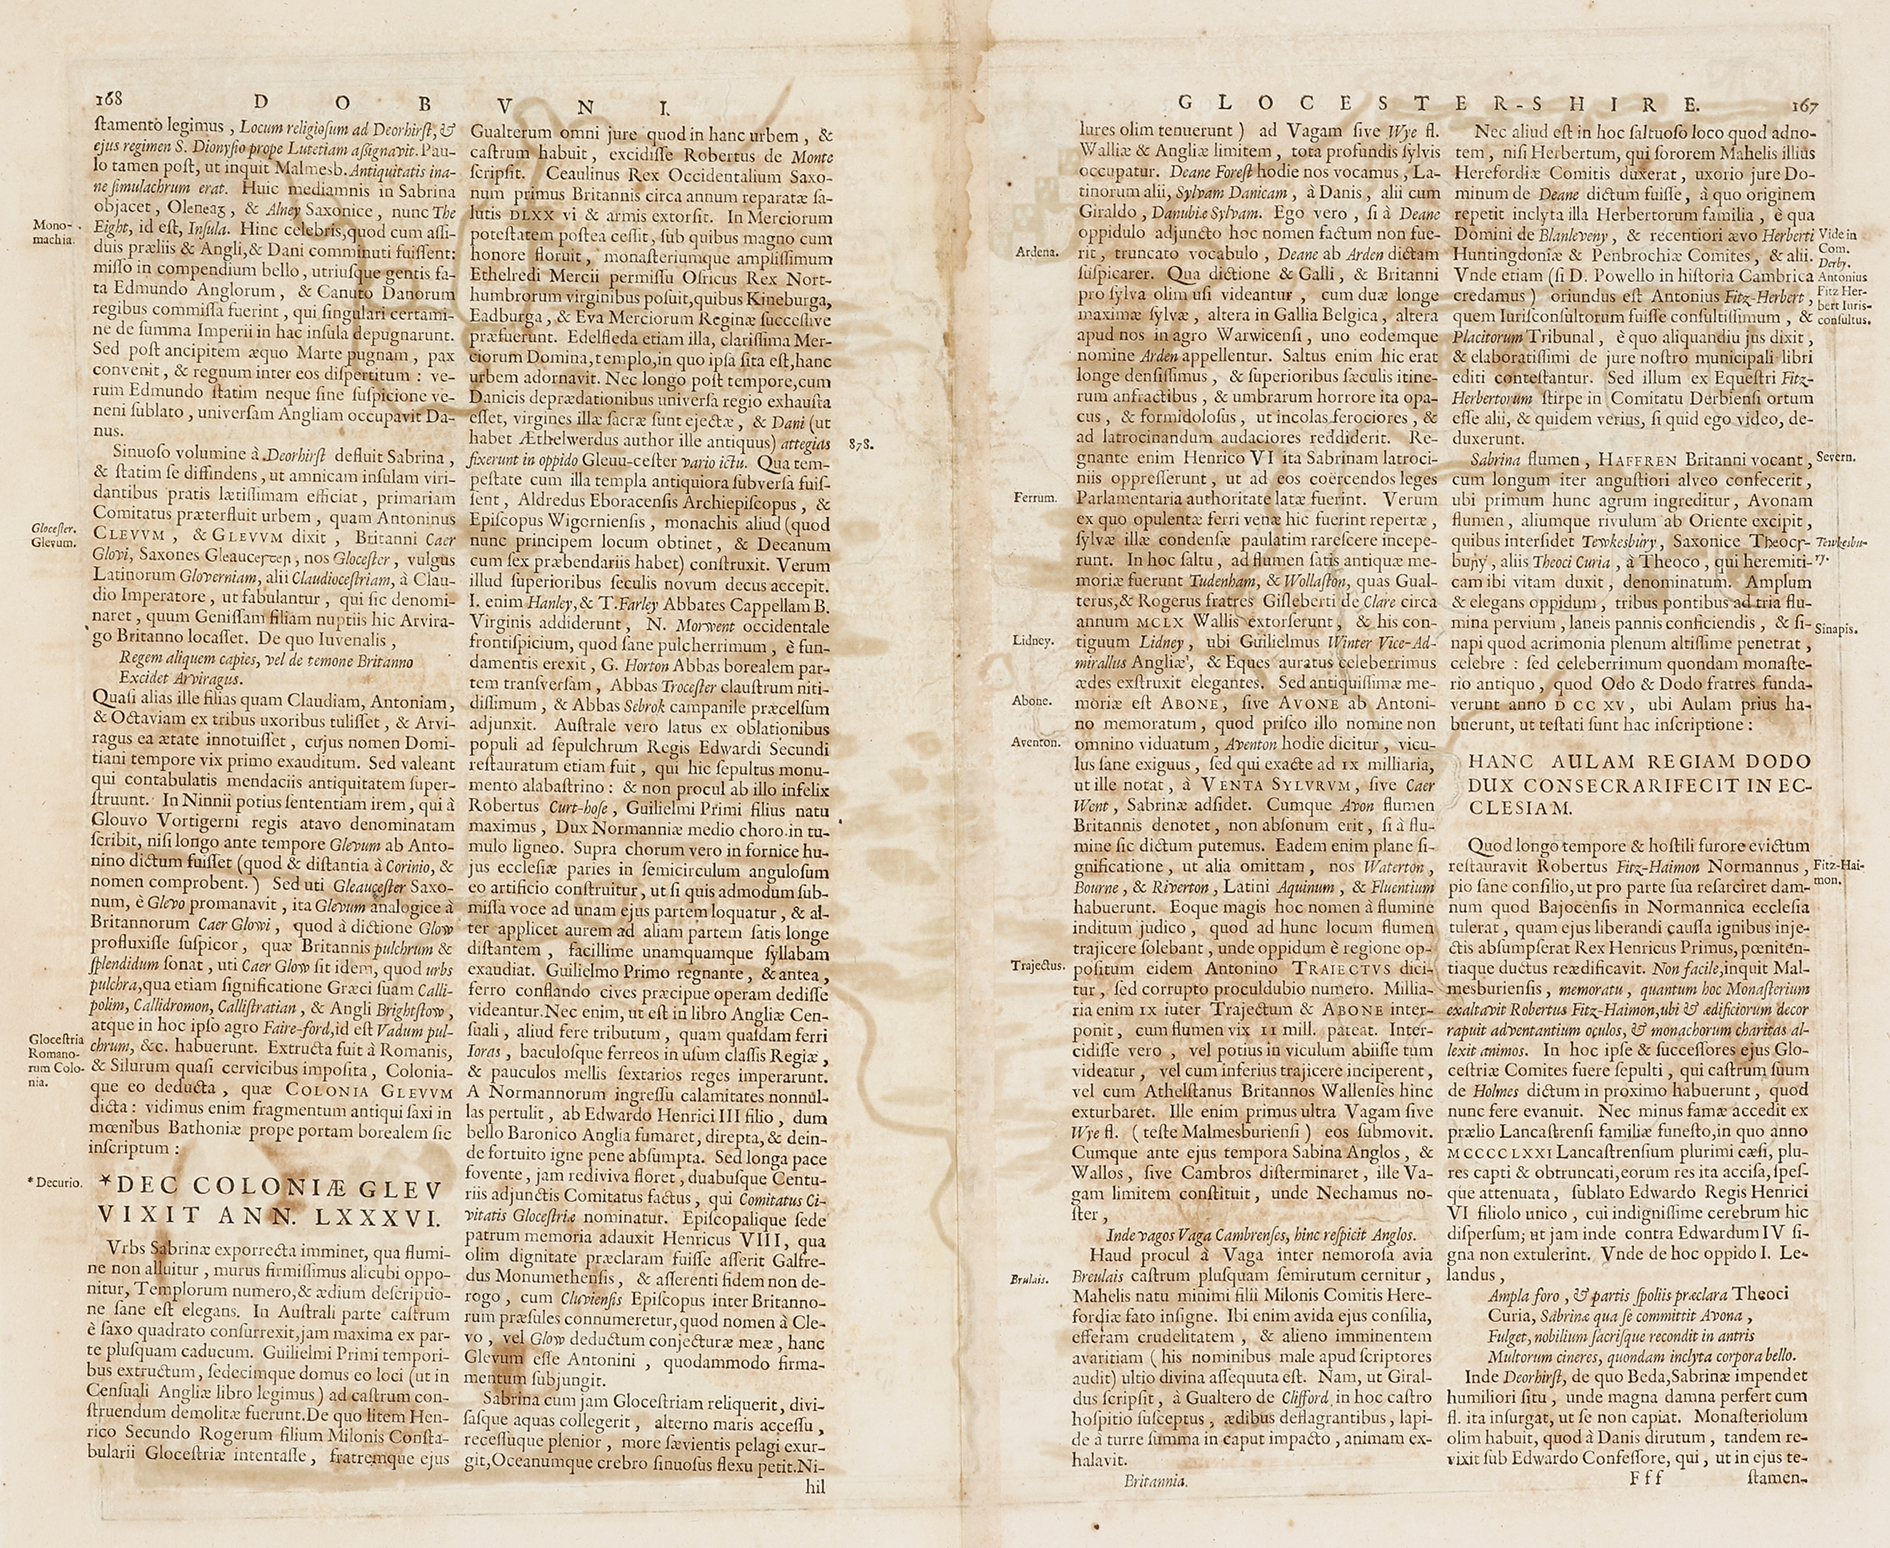 168
D O B V N I.
ſtamento legimus , Locum religioſum ad Deorhirſt, &
ejus regimen S. Dionyſio prope Lutetiam aſſignavit. Pau-
lo tamen poſt, ut inquit Malmesb. Antiquitatis ina-
ne ſimulachrum erat. Huic mediamnis in Sabrina
objacet , Oleneaȝ , & Alney Saxonice , nunc The
Mono-
machia.
Eight, id eſt, Inſula. Hinc celebris, quod cum aſſi-
duis præliis & Angli, & Dani comminuti fuiſſent:
miſſo in compendium bello , utriuſque gentis fa-
ta Edmundo Anglorum , & Canuto Danorum
regibus commiſſa fuerint , qui ſingulari certami-
ne de ſumma Imperii in hac inſula depugnarunt.
Sed poſt ancipitem æquo Marte pugnam , pax
convenit , & regnum inter eos diſpertitum : ve-
rum Edmundo ſtatim neque ſine ſuſpicione ve-
neni ſublato , univerſam Angliam occupavit Da-
nus.
Sinuoſo volumine à Deorhirſt defluit Sabrina ,
& ſtatim ſe diffindens , ut amnicam inſulam viri-
dantibus pratis lætiſſimam efficiat , primariam
Comitatus præterfluit urbem , quam Antoninus
Gloceſter.
Glevum.
CLEVVM , & GLEVVM dixit , Britanni Caer
Glovi, Saxones Gleauceꞃꞇen , nos Gloceſter , vulgus
Latinorum Gloverniam, alii Claudioceſtriam, à Clau-
dio Imperatore , ut fabulantur , qui ſic denomi-
naret , quum Geniſſam filiam nuptiis hic Arvira-
go Britanno locaſſet. De quo Iuvenalis ,
Regem aliquem capies, vel de temone Britanno
Excidet Arviragus.
Quaſi alias ille filias quam Claudiam, Antoniam,
& Octaviam ex tribus uxoribus tuliſſet , & Arvi-
ragus ea ætate innotuiſſet , cujus nomen Domi-
tiani tempore vix primo exauditum. Sed valeant
qui contabulatis mendaciis antiquitatem ſuper-
ſtruunt. In Ninnii potius ſententiam irem , qui à
Glouvo Vortigerni regis atavo denominatam
ſcribit, niſi longo ante tempore Glevum ab Anto-
nino dictum fuiſſet (quod & diſtantia à Corinio, &
nomen comprobent. ) Sed uti Gleauceſter Saxo-
num, è Glevo promanavit , ita Glevum analogice à
Britannorum Caer Glowi , quod à dictione Glow
profluxiſſe ſuſpicor , quæ Britannis pulchrum &
ſplendidum ſonat , uti Caer Glow ſit idem, quod urbs
pulchra, qua etiam ſignificatione Græci ſuam Calli-
polim, Callidromon, Calliſtratian , & Angli Brightſtow ,
atque in hoc ipſo agro Faire-ford, id eſt Vadum pul-
Gloceſtria
Romano-
rum Colo-
nia.
chrum, &c. habuerunt. Extructa fuit à Romanis,
& Silurum quaſi cervicibus impoſita , Colonia-
que eo deducta , quæ COLONIA GLEVVM
dicta : vidimus enim fragmentum antiqui ſaxi in
mœnibus Bathoniæ prope portam borealem ſic
inſcriptum :
* Decurio.
*DEC COLONIÆ GLEV
VIXIT ANN. LXXXVI.
Vrbs Sabrinæ exporrecta imminet, qua flumi-
ne non alluitur , murus firmiſſimus alicubi oppo-
nitur, Templorum numero, & ædium deſcriptio-
ne ſane eſt elegans. In Auſtrali parte caſtrum
è ſaxo quadrato conſurrexit, jam maxima ex par-
te pluſquam caducum. Guilielmi Primi tempori-
bus extructum , ſedecimque domus eo loci (ut in
Cenſuali Angliæ libro legimus) ad caſtrum con-
ſtruendum demolitæ fuerunt. De quo litem Hen-
rico Secundo Rogerum filium Milonis Conſta-
bularii Gloceſtriæ intentaſſe , fratremque ejus
Gualterum omni jure quod in hanc urbem , &
caſtrum habuit , excidiſſe Robertus de Monte
ſcripſit. Ceaulinus Rex Occidentalium Saxo-
num primus Britannis circa annum reparatæ ſa-
lutis DLXX VI & armis extorſit. In Merciorum
poteſtatem poſtea ceſſit , ſub quibus magno cum
honore floruit , monaſteriumque ampliſſimum
Ethelredi Mercii permiſſu Oſricus Rex Nort-
humbrorum virginibus poſuit, quibus Kineburga,
Eadburga , & Eva Merciorum Reginæ ſucceſſive
præfuerunt. Edelfleda etiam illa, clariſſima Mer-
ciorum Domina, templo, in quo ipſa ſita eſt, hanc
urbem adornavit. Nec longo poſt tempore, cum
Danicis deprædationibus univerſa regio exhauſta
eſſet, virgines illæ ſacræ ſunt ejectæ , & Dani (ut
habet Æthelwerdus author ille antiquus) attegias
878.
fixerunt in oppido Gleuu-ceſter vario ictu. Qua tem-
peſtate cum illa templa antiquiora ſubverſa fuiſ-
ſent , Aldredus Eboracenſis Archiepiſcopus , &
Epiſcopus Wigornienſis , monachis aliud (quod
nunc principem locum obtinet , & Decanum
cum ſex præbendariis habet) conſtruxit. Verum
illud ſuperioribus ſeculis novum decus accepit.
I. enim Hanley, & T. Farley Abbates Cappellam B.
Virginis addiderunt , N. Morwent occidentale
frontiſpicium, quod ſane pulcherrimum , è fun-
damentis erexit , G. Horton Abbas borealem par-
tem tranſverſam , Abbas Troceſter clauſtrum niti-
diſſimum , & Abbas Sebrok campanile præcelſum
adjunxit. Auſtrale vero latus ex oblationibus
populi ad ſepulchrum Regis Edwardi Secundi
reſtauratum etiam fuit , qui hic ſepultus monu-
mento alabaſtrino : & non procul ab illo infelix
Robertus Curt-hoſe , Guilielmi Primi filius natu
maximus , Dux Normanniæ medio choro in tu-
mulo ligneo. Supra chorum vero in fornice hu-
jus eccleſiæ paries in ſemicirculum anguloſum
eo artificio conſtruitur, ut ſi quis admodum ſub-
miſſa voce ad unam ejus partem loquatur , & al-
ter applicet aurem ad aliam partem ſatis longe
diſtantem , facillime unamquamque ſyllabam
exaudiat. Guilielmo Primo regnante , & antea ,
ferro conflando cives præcipue operam dediſſe
videantur. Nec enim, ut eſt in libro Angliæ Cen-
ſuali , aliud fere tributum , quam quaſdam ferri
Ioras , baculoſque ferreos in uſum claſſis Regiæ ,
& pauculos mellis ſextarios reges imperarunt.
A Normannorum ingreſſu calamitates nonnul-
las pertulit , ab Edwardo Henrici III filio , dum
bello Baronico Anglia fumaret, direpta, & dein-
de fortuito igne pene abſumpta. Sed longa pace
fovente , jam rediviva floret , duabuſque Centu-
riis adjunctis Comitatus factus , qui Comitatus Ci-
vitatis Gloceſtriæ nominatur. Epiſcopalique ſede
patrum memoria adauxit Henricus VIII, qua
olim dignitate præclaram fuiſſe aſſerit Galfre-
dus Monumethenſis , & aſſerenti fidem non de-
rogo , cum Cluvienſis Epiſcopus inter Britanno-
rum præſules connumeretur, quod nomen à Cle-
vo , vel Glow deductum conjecturæ meæ , hanc
Glevum eſſe Antonini , quodammodo firma-
mentum ſubjungit.
Sabrina cum jam Gloceſtriam reliquerit, divi-
ſaſque aquas collegerit , alterno maris acceſſu ,
receſſuque plenior , more ſævientis pelagi exur-
git, Oceanumque crebro ſinuoſus flexu petit. Ni-
hil
G L O C E S T E R - S H I R E.
167
lures olim tenuerunt ) ad Vagam ſive Wye fl.
Walliæ & Angliæ limitem , tota profundis ſylvis
occupatur. Deane Foreſt hodie nos vocamus , La-
tinorum alii, Sylvam Danicam , à Danis , alii cum
Giraldo , Danubiæ Sylvam. Ego vero , ſi à Deane
oppidulo adjuncto hoc nomen factum non fue-
Ardena.
rit , truncato vocabulo , Deane ab Arden dictam
ſuſpicarer. Qua dictione & Galli , & Britanni
pro ſylva olim uſi videantur , cum duæ longe
maximæ ſylvæ , altera in Gallia Belgica , altera
apud nos in agro Warwicenſi , uno eodemque
nomine Arden appellentur. Saltus enim hic erat
longe denſiſſimus , & ſuperioribus ſæculis itine-
rum anfractibus , & umbrarum horrore ita opa-
cus , & formidoloſus , ut incolas ferociores , &
ad latrocinandum audaciores reddiderit. Re-
gnante enim Henrico VI ita Sabrinam latroci-
niis oppreſſerunt , ut ad eos coërcendos leges
Ferrum.
Parlamentaria authoritate latæ fuerint. Verum
ex quo opulentæ ferri venæ hic fuerint repertæ ,
ſylvæ illæ condenſæ paulatim rareſcere incepe-
runt. In hoc ſaltu , ad flumen ſatis antiquæ me-
moriæ fuerunt Tudenham, & Wollaſton, quas Gual-
terus, & Rogerus fratres Giſleberti de Clare circa
annum MCLX Wallis extorſerunt , & his con-
Lidney.
tiguum Lidney , ubi Guilielmus Winter Vice-Ad-
mirallus Angliæ , & Eques auratus celeberrimus
ædes exſtruxit elegantes. Sed antiquiſſimæ me-
Abone.
moriæ eſt ABONE , ſive AVONE ab Antoni-
no memoratum , quod priſco illo nomine non
Aventon.
omnino viduatum , Aventon hodie dicitur , vicu-
lus ſane exiguus , ſed qui exacte ad IX milliaria,
ut ille notat , à VENTA SYLVRVM, ſive Caer
Went , Sabrinæ adſidet. Cumque Avon flumen
Britannis denotet , non abſonum erit , ſi à flu-
mine ſic dictum putemus. Eadem enim plane ſi-
gnificatione , ut alia omittam , nos Waterton ,
Bourne , & Riverton , Latini Aquinum , & Fluentium
habuerunt. Eoque magis hoc nomen à flumine
inditum judico , quod ad hunc locum flumen
trajicere ſolebant , unde oppidum è regione op-
Trajectus.
poſitum eidem Antonino TRAIECTVS dici-
tur , ſed corrupto proculdubio numero. Millia-
ria enim IX iuter Trajectum & ABONE inter-
ponit , cum flumen vix II mill. pateat. Inter-
cidiſſe vero , vel potius in viculum abiiſſe tum
videatur , vel cum inferius trajicere inciperent,
vel cum Athelſtanus Britannos Wallenſes hinc
exturbaret. Ille enim primus ultra Vagam ſive
Wye fl. ( teſte Malmesburienſi ) eos ſubmovit.
Cumque ante ejus tempora Sabina Anglos , &
Wallos , ſive Cambros diſterminaret , ille Va-
gam limitem conſtituit , unde Nechamus no-
ſter ,
Inde vagos Vaga Cambrenſes, hinc reſpicit Anglos.
Haud procul à Vaga inter nemoroſa avia
Brulais.
Breulais caſtrum pluſquam ſemirutum cernitur ,
Mahelis natu minimi filii Milonis Comitis Here-
fordiæ fato inſigne. Ibi enim avida ejus conſilia,
efferam crudelitatem , & alieno imminentem
avaritiam ( his nominibus male apud ſcriptores
audit) ultio divina aſſequuta eſt. Nam, ut Giral-
dus ſcripſit , à Gualtero de Clifford in hoc caſtro
hoſpitio ſuſceptus , ædibus deflagrantibus , lapi-
de à turre ſumma in caput impacto , animam ex-
halavit.
Britannia.
Nec aliud eſt in hoc ſaltuoſo loco quod adno-
tem , niſi Herbertum, qui ſororem Mahelis illius
Herefordiæ Comitis duxerat , uxorio jure Do-
minum de Deane dictum fuiſſe , à quo originem
repetit inclyta illa Herbertorum familia , è qua
Domini de Blanleveny , & recentiori ævo Herberti
Huntingdoniæ & Penbrochiæ Comites , & alii.
Vide in
Com.
Derby.
Antonius
Fitz Her-
bert Iuris-
conſultus.
Vnde etiam (ſi D. Powello in hiſtoria Cambrica
credamus ) oriundus eſt Antonius Fitz-Herbert ,
quem Iuriſconſultorum fuiſſe conſultiſſimum , &
Placitorum Tribunal , è quo aliquandiu jus dixit ,
& elaboratiſſimi de jure noſtro municipali libri
editi conteſtantur. Sed illum ex Equeſtri Fitz-
Herbertorum ſtirpe in Comitatu Derbienſi ortum
eſſe alii, & quidem verius, ſi quid ego video, de-
duxerunt.
Sabrina flumen , HAFFREN Britanni vocant ,
Severn.
cum longum iter anguſtiori alveo confecerit,
ubi primum hunc agrum ingreditur , Avonam
flumen , aliumque rivulum ab Oriente excipit ,
quibus interſidet Tewkesbury, Saxonice Theocꞃ-
Tewkesbu-
ry.
buꞃẏ, aliis Theoci Curia , à Theoco , qui heremiti-
cam ibi vitam duxit , denominatum. Amplum
& elegans oppidum , tribus pontibus ad tria flu-
mina pervium , laneis pannis conficiendis , & ſi-
Sinapis.
napi quod acrimonia plenum altiſſime penetrat ,
celebre : ſed celeberrimum quondam monaſte-
rio antiquo , quod Odo & Dodo fratres funda-
verunt anno D CC XV , ubi Aulam prius ha-
buerunt, ut teſtati ſunt hac inſcriptione :
HANC AULAM REGIAM DODO
DUX CONSECRARIFECIT IN EC-
CLESIAM.
Quod longo tempore & hoſtili furore evictum
reſtauravit Robertus Fitz-Haimon Normannus ,
Fitz-Hai-
mon.
pio ſane conſilio, ut pro parte ſua reſarciret dam-
num quod Bajocenſis in Normannica eccleſia
tulerat , quam ejus liberandi cauſſa ignibus inje-
ctis abſumpſerat Rex Henricus Primus, pœniten-
tiaque ductus reædificavit. Non facile, inquit Mal-
mesburienſis , memoratu , quantum hoc Monaſterium
exaltavit Robertus Fitz-Haimon, ubi & ædificiorum decor
rapuit adventantium oculos, & monachorum charitas al-
lexit animos. In hoc ipſe & ſucceſſores ejus Glo-
ceſtriæ Comites fuere ſepulti , qui caſtrum ſuum
de Holmes dictum in proximo habuerunt , quod
nunc fere evanuit. Nec minus famæ accedit ex
prælio Lancaſtrenſi familiæ funeſto, in quo anno
MCCCCLXXI Lancaſtrenſium plurimi cæſi, plu-
res capti & obtruncati, eorum res ita acciſa, ſpeſ-
que attenuata , ſublato Edwardo Regis Henrici
VI filiolo unico , cui indigniſſime cerebrum hic
diſperſum; ut jam inde contra Edwardum IV ſi-
gna non extulerint. Vnde de hoc oppido I. Le-
landus ,
Ampla foro , & partis ſpoliis præclara Theoci
Curia, Sabrinæ qua ſe committit Avona ,
Fulget, nobilium ſacriſque recondit in antris
Multorum cineres, quondam inclyta corpora bello.
Inde Deorhirſt, de quo Beda, Sabrinæ impendet
humiliori ſitu , unde magna damna perfert cum
fl. ita inſurgat, ut ſe non capiat. Monaſteriolum
olim habuit, quod à Danis dirutum , tandem re-
vixit ſub Edwardo Confeſſore, qui , ut in ejus te-
F f f
ſtamen-